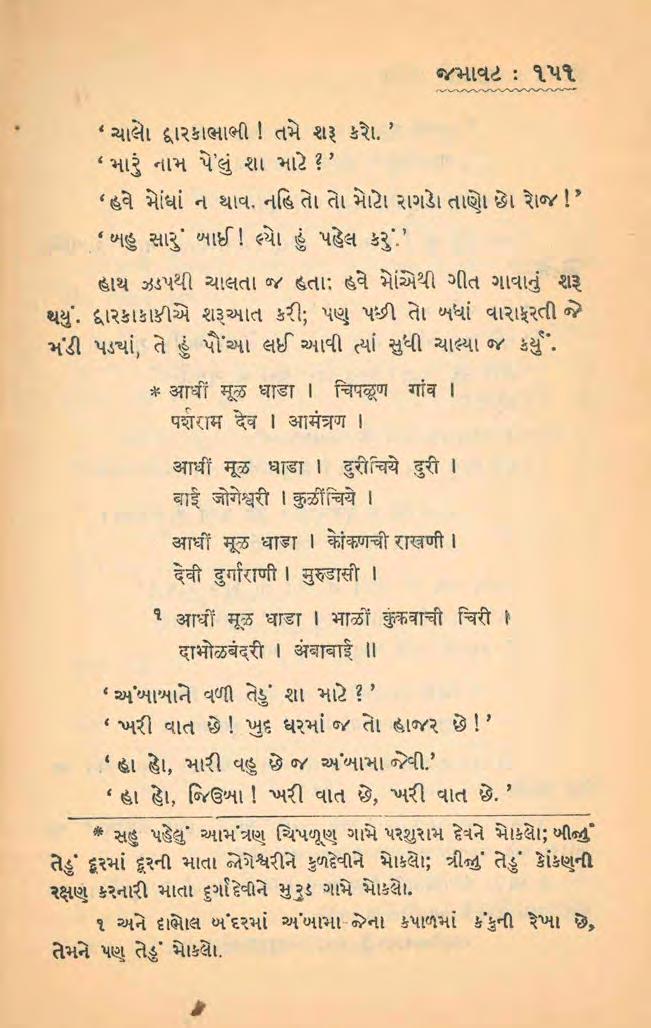 જમાવટ : ૧૫૧
‘ ચાલો દ્વારકાભાભી ! તમે શરૂ કરો. ’
‘ મારું નામ પે'લું શા માટે ? ’
‘ હવે મોંઘાં ન થાવ. નહિ તો તો મોટો રાગડો તાણો છો રોજ ! ’
‘ બહુ સારું બાઈ ! લ્યો હું પહેલ કરું.’
હાથ ઝડપથી ચાલતા જ હતા: હવે મોંએથી ગીત ગાવાનું શરૂ
થયું. દ્વારકાકાકીએ શરૂઆત કરી; પણ પછી તો બધાં વારાફરતી જે
મંડી પડ્યાં, તે હું પૌંઆ લઈ આવી ત્યાં સુધી ચાલ્યા જ કર્યું.
* आधीं मूळ धाडा । चिपळूण गांव ।
पर्शराम देव । आमंत्रण ।
आधीं मूळ धाडा । दुरीचिये दुरी ।
बाई जोगेश्वरी । कुळींचिये ।
आधीं मूळ धाडा । कोंकणची राखणी ।
देवी दुर्गाराणी । मुरुडासी ।
१ आधीं मूळ धाडा । भाळीं कुंकवाची चिरी ।
दाभोळबंदरी । अंबाबाई ॥
‘ અંબાબાને વળી તેડું શા માટે ? ’
‘ ખરી વાત છે ! ખુદ ઘરમાં જ તો હાજર છે ! ’
‘ હા હો, મારી વહુ છે જ અંબામા જેવી.’
‘ હા હો, જિઉબા ! ખરી વાત છે, ખરી વાત છે. ’
* સહુ પહેલું આમંત્રણ ચિપળૂણ ગામે પરશુરામ દેવને મોકલો; બીજું
તેડું દૂરમાં દૂરની માતા જોગેશ્વરીને કુળદેવીને મોકલો; ત્રીજું તેડું કોંકણની
રક્ષણ કરનારી માતા દુર્ગાદેવીને મુરુડ ગામે મોકલો.
૧ અને દાભોલ બંદરમાં અંબામા-જેના કપાળમાં કંકુની રેખા છે,
તેમને પણ તેડું મોકલો.